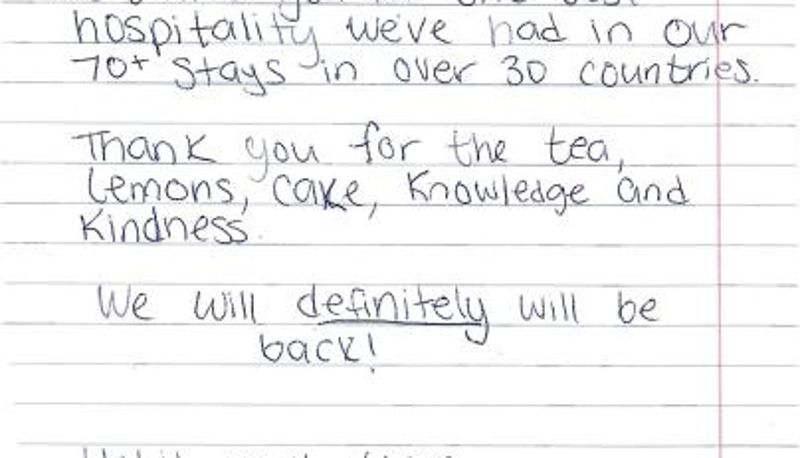 hospitality we've had in our
70+ stays in over 30 countries.
Thank you for the tea,
lemons, cake, knowledge and
kindness.
We will definitely will be
back!